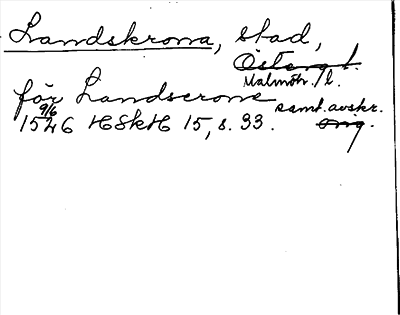 Landskrona, stad,
Östergl.
Malmöh./l.
för Landscrone
samt.avskr.
9/6
1526 HSkH 15, s. 33. orig.